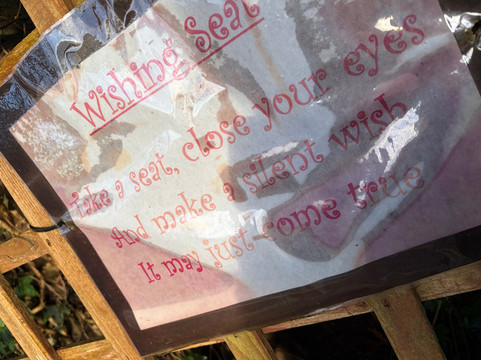 Wishing Seat
Take a seat, close your eyes
And make a silent wish
It may just come true